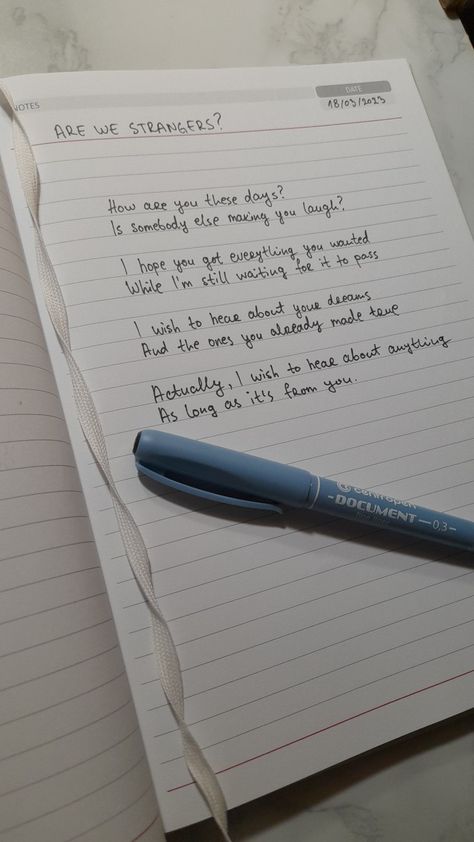 NOTES
DATE
18/03/2023
ARE WE STRANGERS?
How are you these days?
Is somebody else making you laugh?
I hope you got everything you wanted
While I'm still waiting for it to pass
I wish to hear about your dreams
And the ones you already made true
Actually, I wish to hear about anything
As long as it's from you.
centropen
-DOCUMENT-0,3-